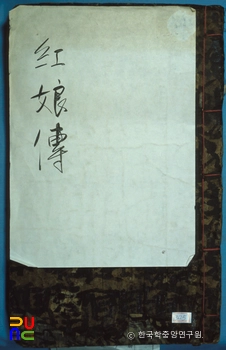 紅娘傳
© 한국학중앙연구원